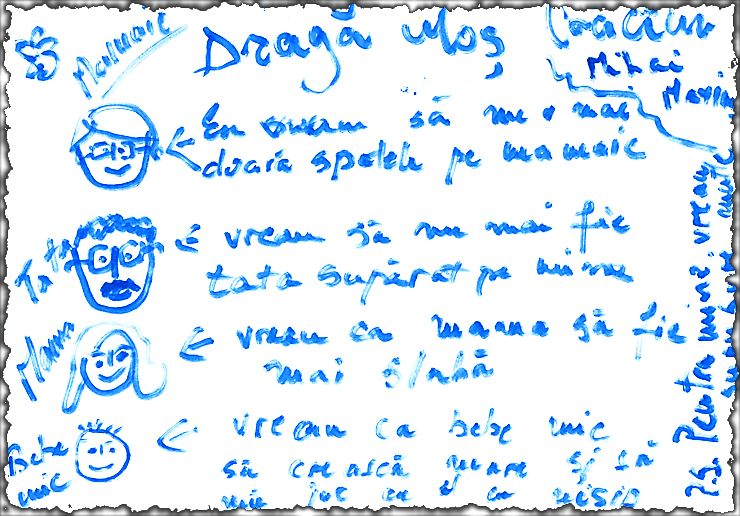 Dragă Moș Crăciun
Mihai
Mamaie
Eu vreau să nu o mai
doară spatele pe mamaie
Tata
vreau să nu mai fie
tata supărat pe mine
Mama
vreau ca mama să fie
mai slabă
Bebe
mic
vreau ca bebe mic
să crească mare și să
mă joc cu el cu
P.S. Pentru mine vreau